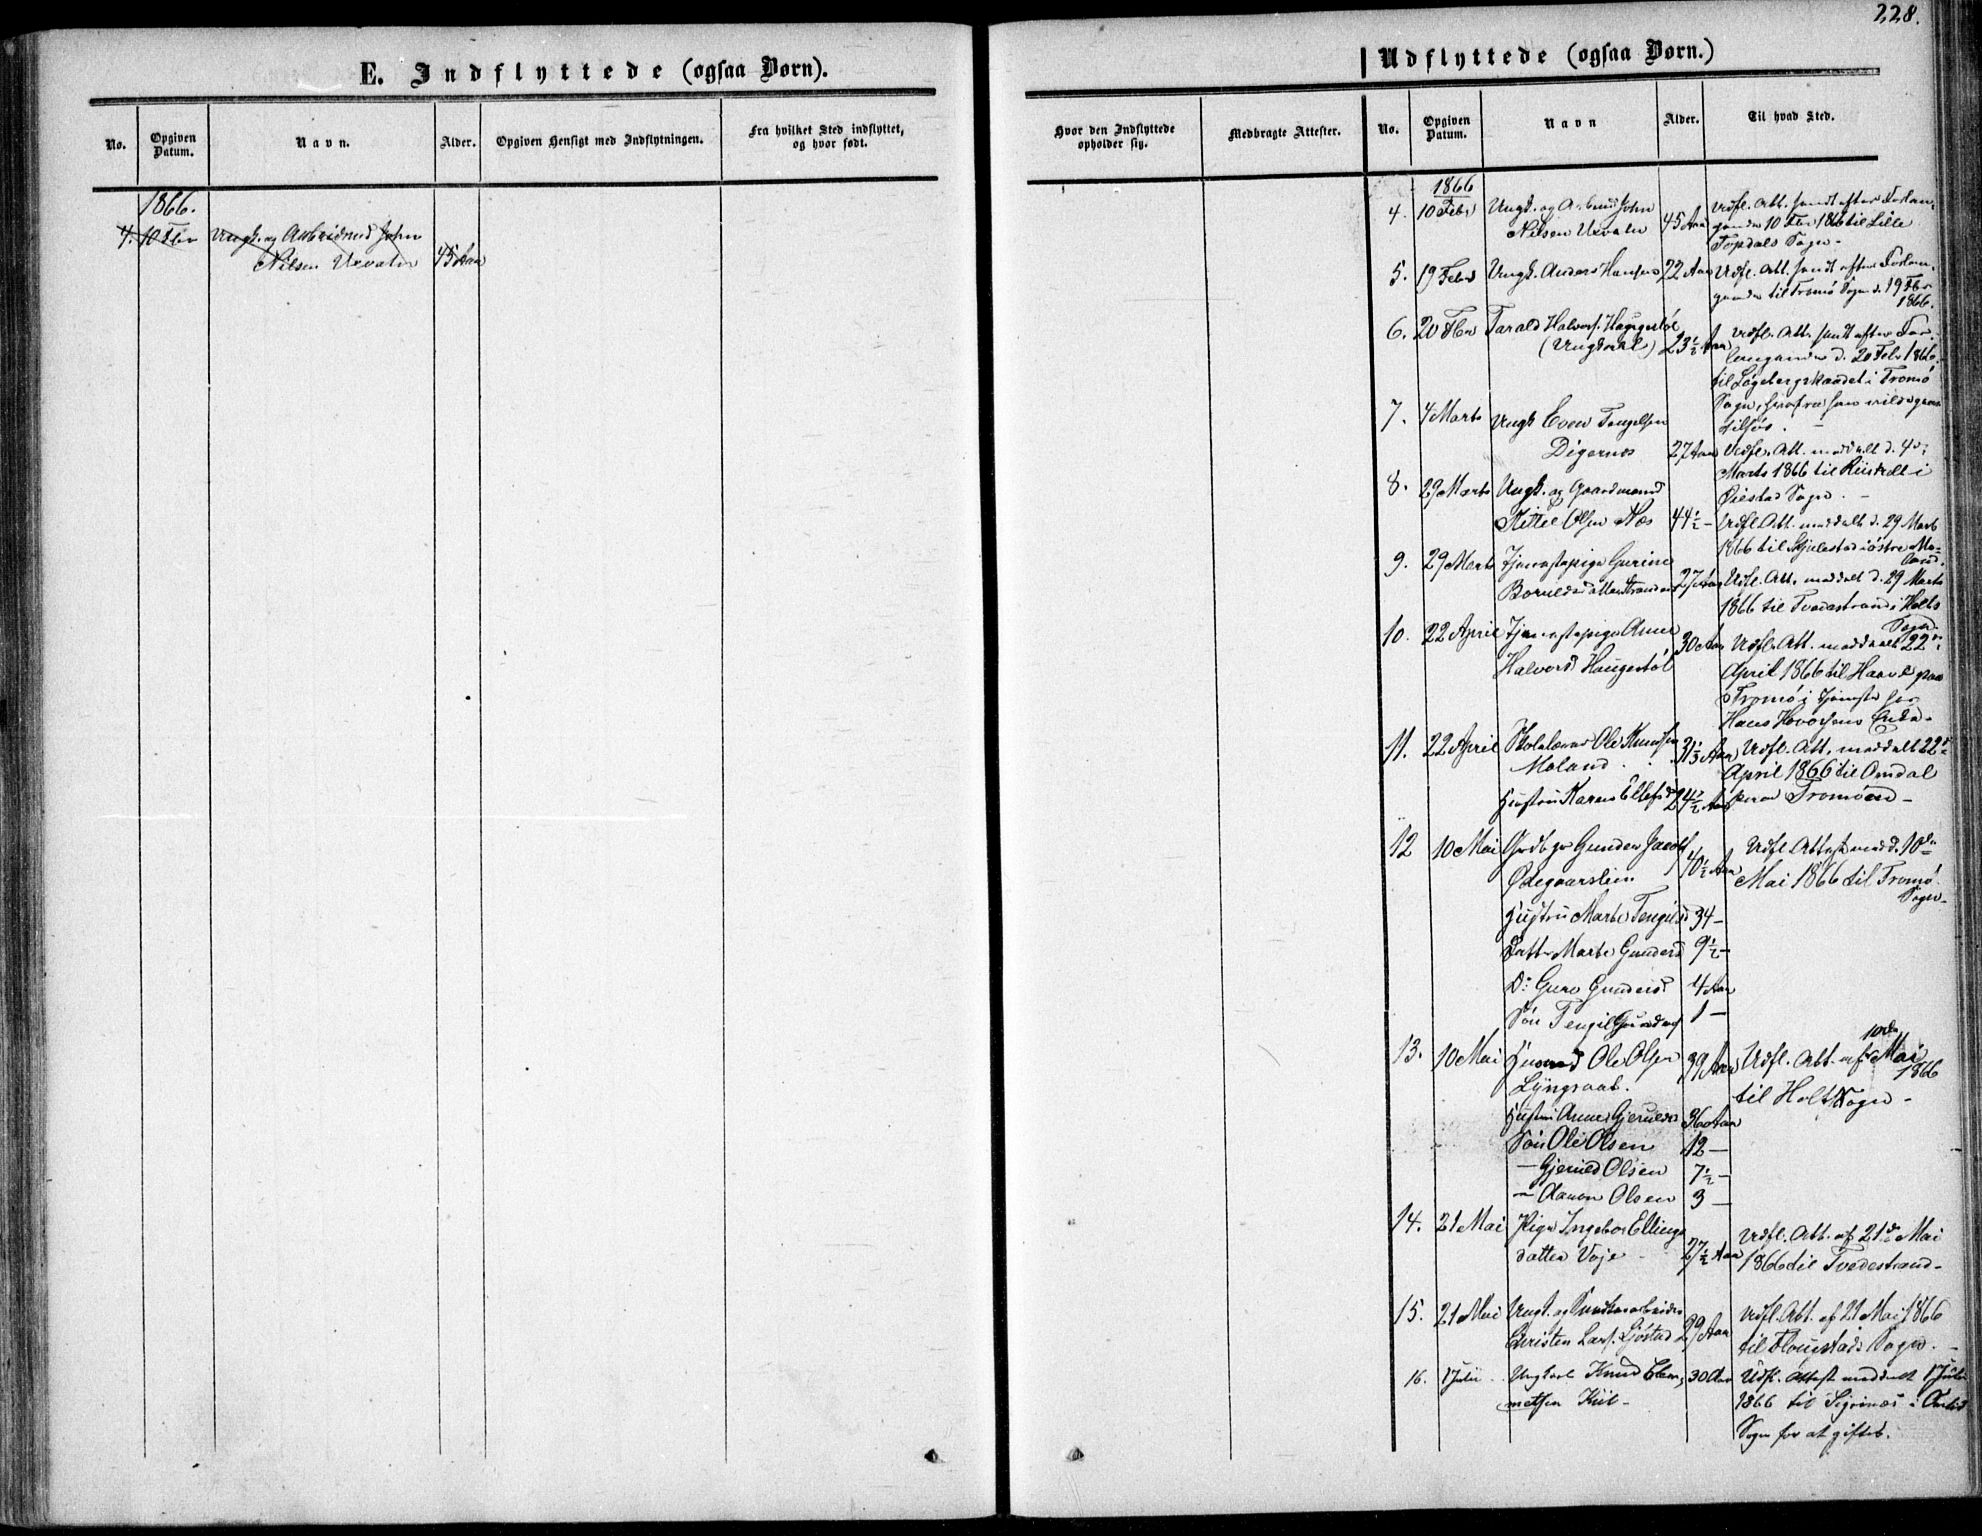 228.
E. Indflyttede (ogsaa Børn).
No.
Opgiven Datum.
Navn.
Alder.
Opgiven Hensigt med Indflytningen.
Fra hvilket Sted indflyttet, og hvor født.
1866.
4. 10 Febr Ungk. og Arbeidsmd John
Nilsen Urvatn 45 Aar
Udflyttede (ogsaa Børn.)
Hvor den Indflyttede opholder sig.
Medbragte Attester.
No.
Opgiven Datum.
Navn
Alder.
Til hvad Sted.
1866
4. 10 Febr Ungk. og Arbmd John
Nilsen Urvatn 45 Aar
Udfl. Att. sendt efter Forlan-
gende 10 Febr 1866 til Lille
Topdals Sogn.
5. 19 Febr Ungk. Anders Hansen 22 Aar
Udfl. Att. sendt efter Forlan-
gende til Tromø Sogn d. 19 Febr
1866.
6. 20 Febr Tarald Halvors. Haugestøl
(Ungkarl) 23½ Aar
Udfl. Att. sendt efter For-
langende d. 20 Feb. 1866
til i Tromø
Sogn, hvorfra han vilde
tilsøs.
7. 4 Marts Ungk Even Tengelsen
Digernes 27 Aar
Udfl. Att. meddelt d. 4de
Marts 1866 til i
Øiestad Sogn. -
8. 29 Marts Ungk. og Gaardmand
Kittel Olsen Næs 44½ -
Udfl. Att. meddelt d. 29 Marts
1866 til i østre Mo-
land.
9. 29 Marts Tjenestepige Gurine
27 Aar
Udfl. Att. meddelt d. 29 Marts
1866 til Tvedestrand i Holts
Sogn.
10. 22 April Tjenestepige Anne
Halvorsd Haugestøl 30 Aar
Udfl. Att. meddelt 22de
April 1866 til Haave paa
Tromø i Tjeneste hos
Hans Enke.
11. 22 April Skolelærer Ole Knudsen
Moland 31⅓ Aar
Hustru Karen Ellefsd 24½ Aar
Udfl. Att. meddelt 22de
April 1866 til Omdal
paa Tromøen -
12 10 Mai Gunder Jacobs
Ødegaarslien 40½ Aar
Hustru Marte Tengelsd 34 -
Datter Marte Gundersd 9½ -
Do: Guro Gundersd 4 Aar
Søn Tengel Gunders 1 -
Udfl. Attest medd. 10de
Mai 1866 til Tromø
Sogn -
13. 10 Mai Husmd Ole Olsen
Lyngraat. 39 Aar
Hustru Anne Gjeruldsd 36 Aar
Søn Ole Olsen 12 -
- Gjeruld Olsen 7½ -
- Aanon Olsen 3 -
Udfl. Att. af 10de Mai
1866
til Holt Sogn -
14. 21 Mai Pige Ingebor Ellings
datter Voje 27½ Aar
Udfl. Att. af 21de Mai
1866 til Tvedestrand -
15. 21 Mai Ungk. og
Christen Lars. Sjøstad 29 Aar
Udfl. Att. af 21 Mai 1866
til Sogn. -
16. 1 Juli Ungkarl Knud Clem-
metsen Kiil - 30 Aar
Udfl. Attest meddelt 1 Juli
1866 til i
Sogn for at giftes.